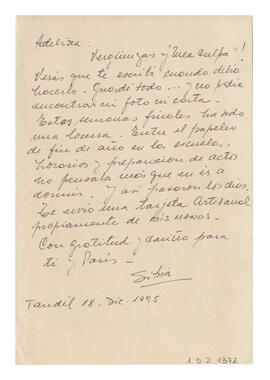 Adelina:
Vergüenzas y "Mea culpa"!
Verás que te escribí cuando debía
hacerlo - Guardé todo... y no podía
encontrar ni foto ni carta.
Estas semanas finales ha sido
una locura. Entre el papeleo
de fin de año en la escuela,
horarios y preparación de actos
no pensaba más que en ir a
dormir. Y así pasaron los días.
Te envío una tarjeta Artesanal
propiamente de mis manos.
Con gratitud y cariño para
ti y París -
Tandil 18. Dic 1995
1 3 2 1372